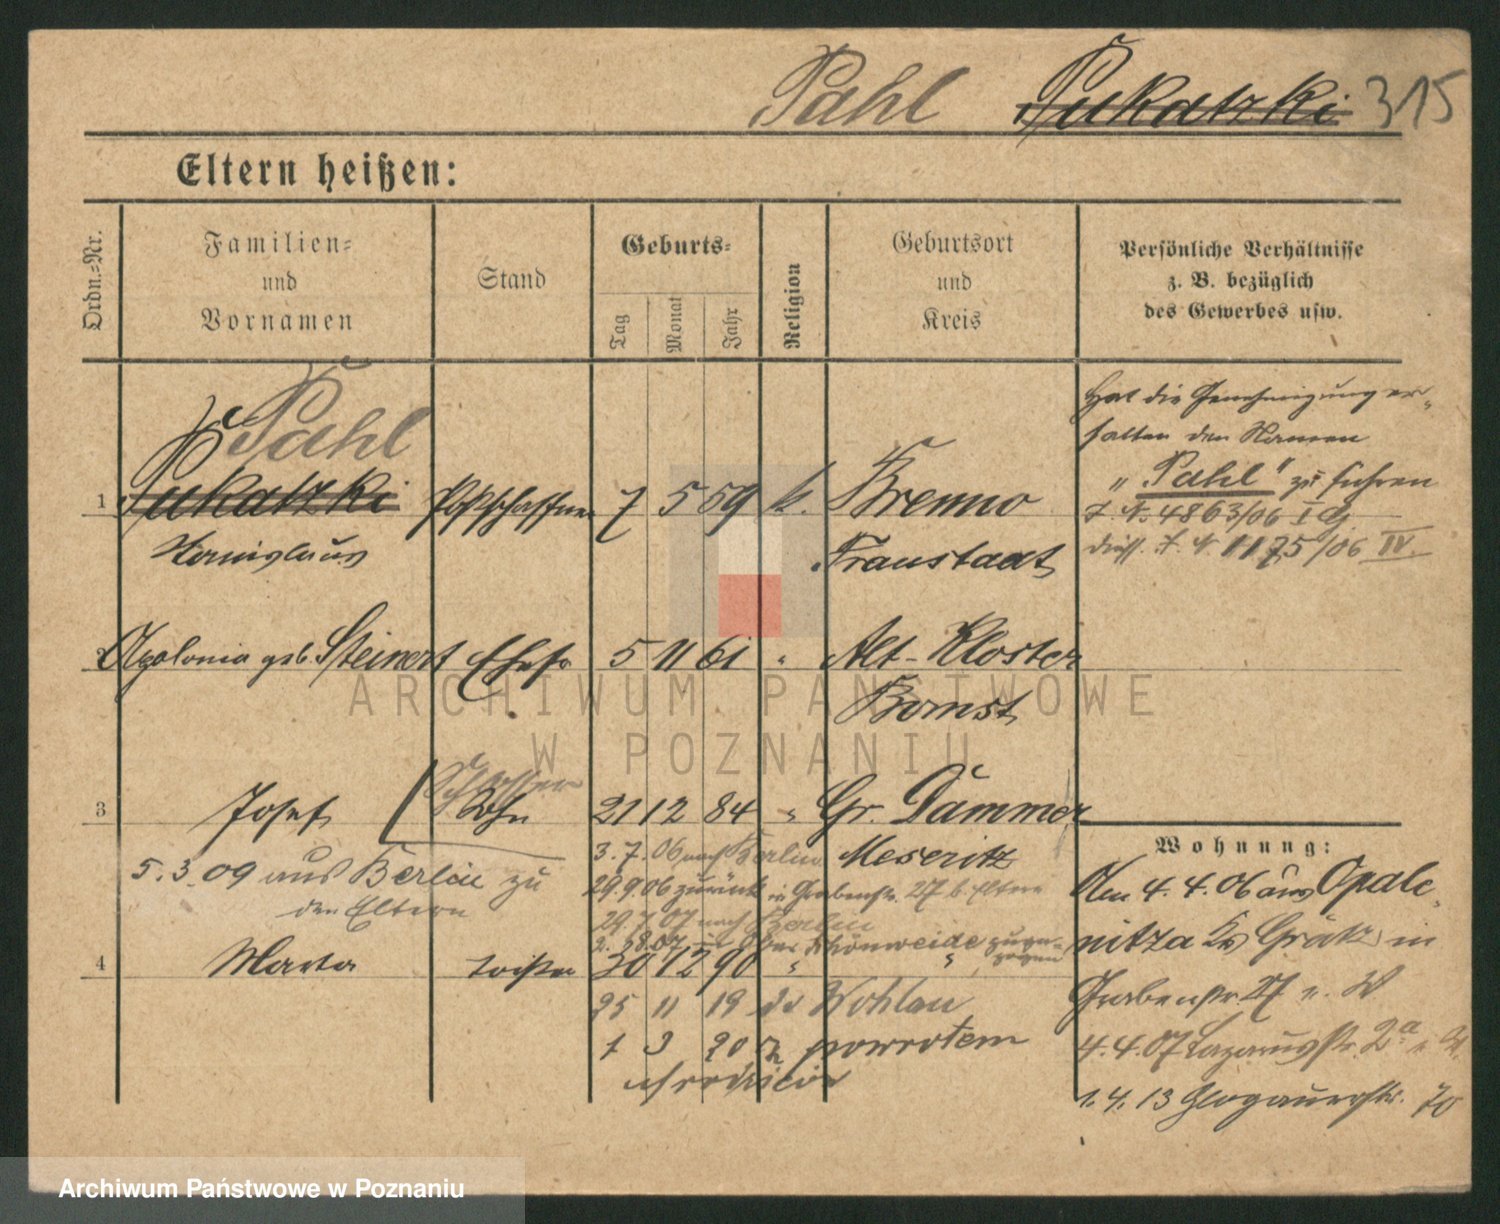 Pahl Pukatzki 315
Eltern heißen:
Ordn.-Nr.
Familien-
und
Vornamen
Stand
Geburts-
Tag
Monat
Jahr
Religion
Geburtsort
und
Kreis
Persönliche Verhältnisse
z. B. bezüglich
des Gewerbes usw.
Pahl
1 Pukatzki Postschaffner 7 5 59 k. Brenno
Stanislaus Fraustadt
Hat die Genehmigung er-
halten den Namen
„Pahl" zu führen
J. N. 4863/06 I
J. N. 1175/06 IV.
Apolonia geb. Steinert Ehefr 5 11 61 " Alt-Kloster
Bomst
Schlosser
3 Josef Sohn 21 12 84 " Gr. Dammer
Meseritz
5.3.09 aus Berlin zu
den Eltern
3.7.06 nach Berlin
29.9.06 zurück in Grabenstr. 27 b. Eltern
29.7.07 nach Berlin
Schönweide
4 Marta Tochter 30 12 90 " "
25 11 19 Wohlau
1 3 20 powrotem
Wohnung:
Am 4.4.06 aus Opale-
nitza Kr Grätz in
Grabenstr. 27
4.4.07 Lazarusstr. 2a
1.4.13 Glogauerstr. 70
ARCHIWUM PAŃSTWOWE
W POZNANIU
Archiwum Państwowe w Poznaniu